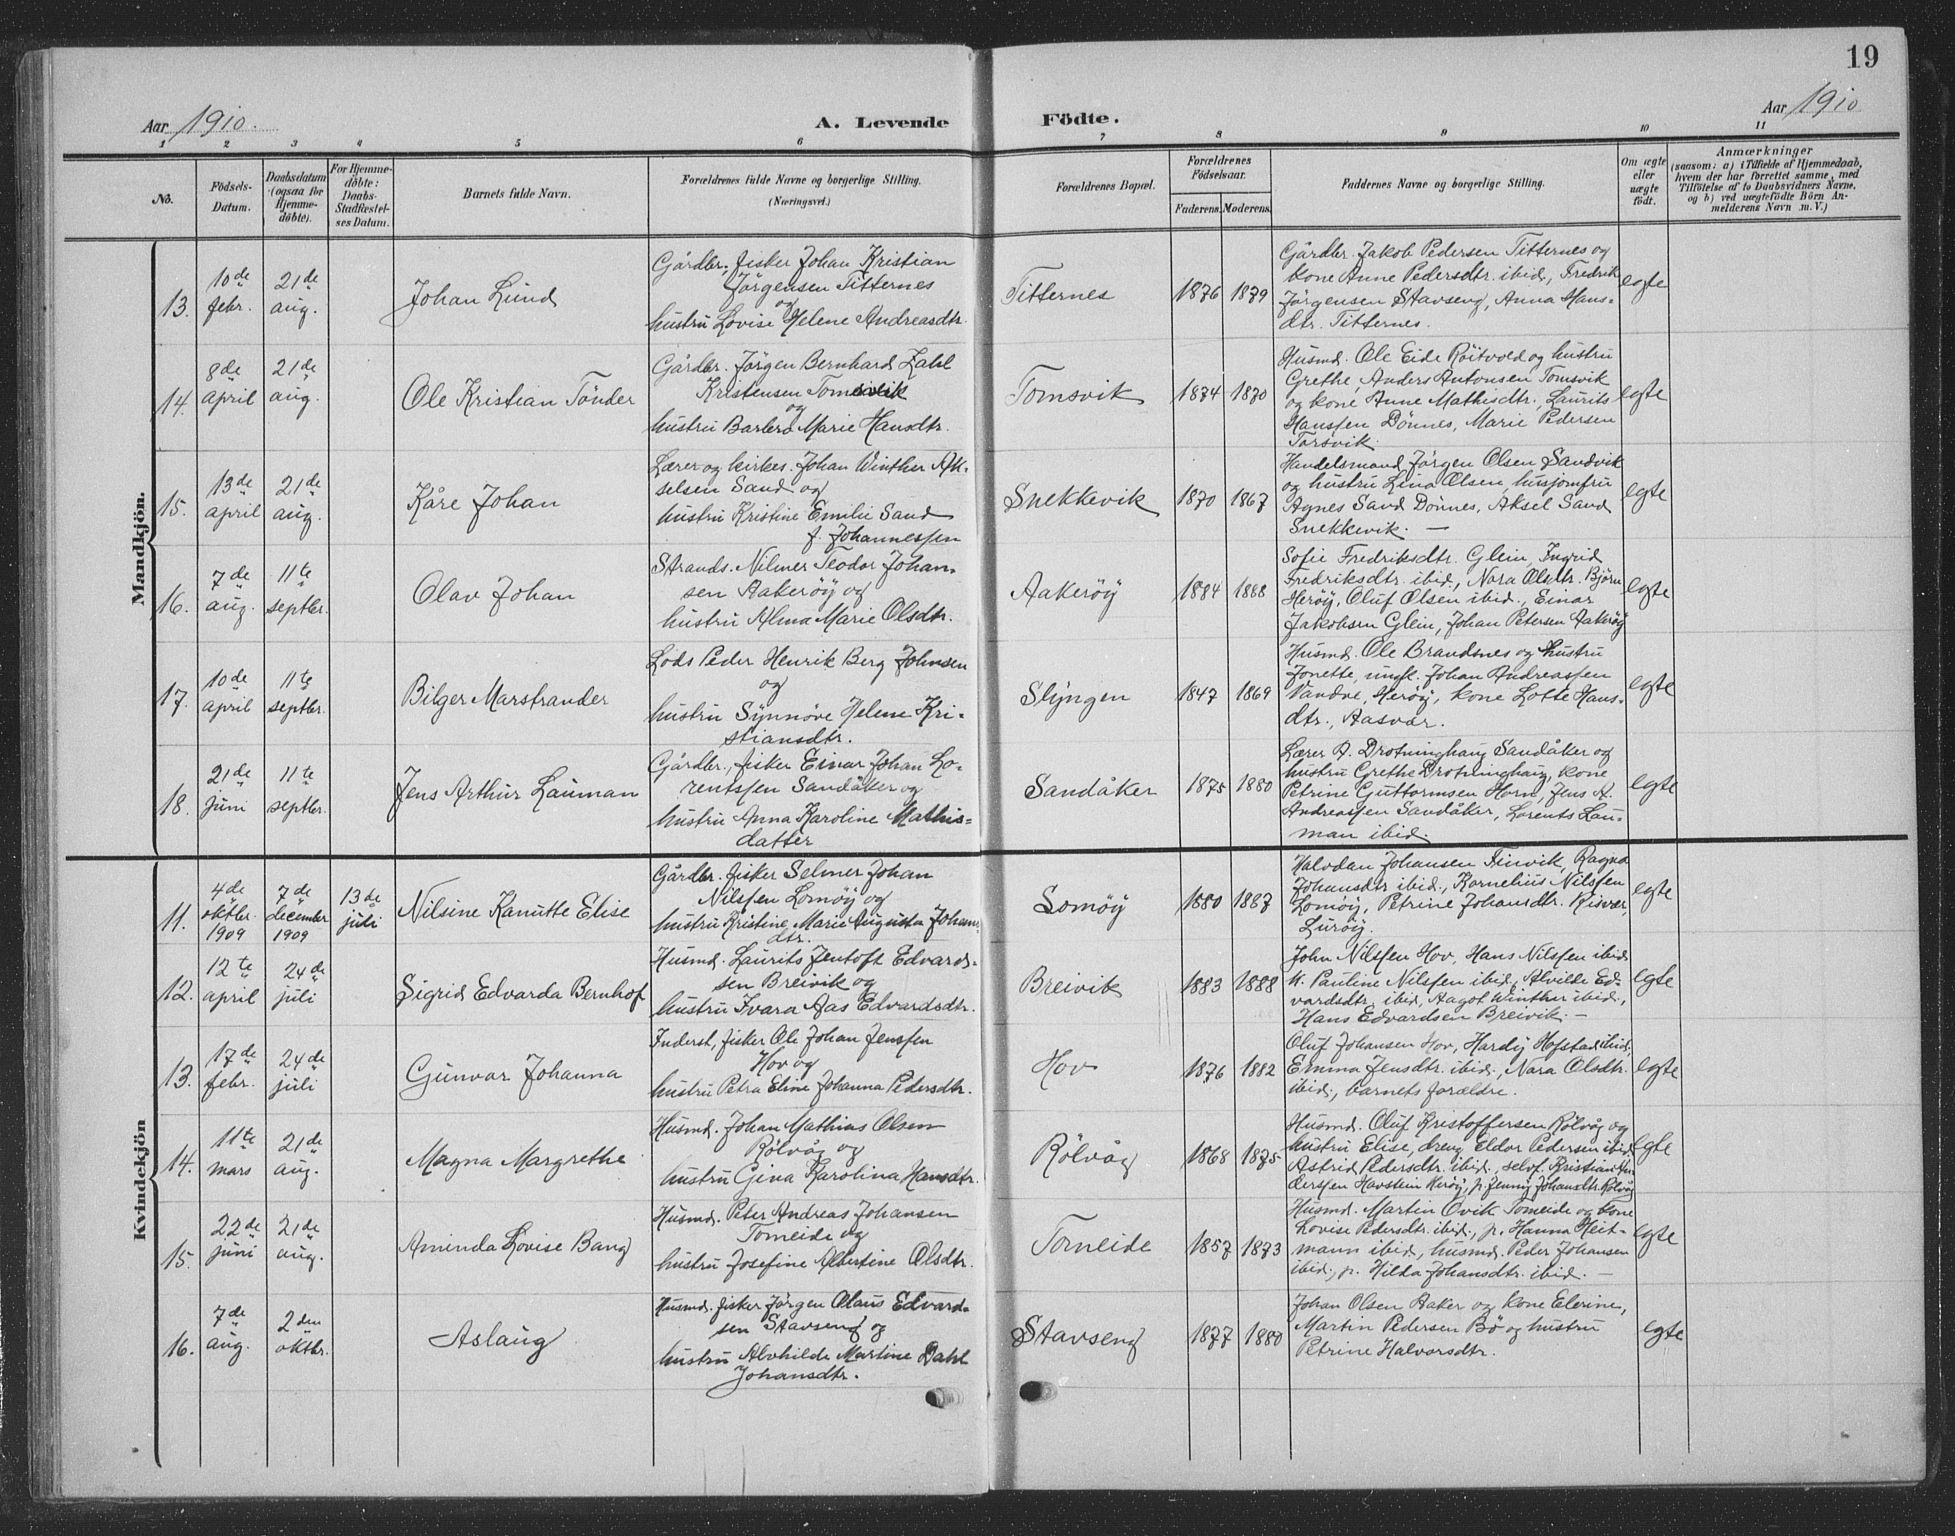 19
Aar 1910.
A. Levende Födte.
Aar 1910
1 2 3 4 5 6 7 8 9 10 11
No.
Födsels-
Datum.
Daabsdatum
(ogsaa for
Hjemme-
döbte).
For Hjemme-
döbte:
Daabs-
Stadfæstel-
ses Datum.
Barnets fulde Navn.
Forældrenes fulde Navne og borgerlige Stilling.
(Næringsvei.)
Forældrenes Bopæl.
Forældrenes
Födselsaar.
Faderens. Moderens.
Faddernes Navne og borgerlige Stilling.
Om ægte
eller
uægte
födt.
Anmærkninger
(saasom: a) i Tilfælde af Hjemmedaab,
hvem der har forrettet samme, med
Tilföielse af to Daabsvidners Navne,
og b) ved uægtefödte Börn An-
melderens Navn m. V.)
Mandkjön.
13.
10de
febr.
21de
aug.
Johan Lund
Gårdbr. fisker Johan Kristian
Jörgensen Titternes
og
hustru Lovise Helene Andreasdtr.
Titternes
1876 1879
Gårdbr. Jakob Pedersen Titternes og
kone Anne Pedersdtr. ibid, Fredrik
Jörgensen Stavseng, Anna Hans-
dtr. Titternes.
egte
14.
8de
april
21de
aug.
Ole Kristian Tönder
Gårdbr. Jörgen Bernhard Zahl
Kristensen Tomsvik
og
hustru Barbro Marie Hansdtr.
Tomsvik
1874 1870
Husmd. Ole Eide Röitvold og hustru
Grethe, Anders Antonsen Tomsvik
og kone Anne Mathisdtr., Laurits
Hanssen Dönnes, Marie Pedersen
Torsvik.
egte
15.
13de
april
21de
aug.
Kåre Johan
Lærer og kirkes. Johan Winther Ak-
selsen Sand og
hustru Kristine Emilie Sand
f. Johannessen
Snekkevik
1870 1867
Handelsmand Jörgen Olsen Sandvik
og hustru Lina Olsen, husjomfru
Agnes Sand Dönnes, Aksel Sand
Snekkevik. —
egte
16.
7de
aug.
11te
septbr.
Olav Johan
Strands. Nilmer Teodor Johan-
sen Aakeröy og
hustru Alma Marie Olsdtr.
Aakeröy
1884 1888
Sofie Fredriksdtr. Glein Ingrid
Fredriksdtr. ibid., Nora Olsdtr. Björn
Heröy, Oluf Olsen ibid., Einar
Jakobsen Glein, Johan Petersen Aakeröy
egte
17.
10de
april
11te
septbr.
Bilger Marstrander
Lods Peder Henrik Berg Johnsen
og
hustru Synnöve Helene Kri-
stiansdtr.
Slyngen
1847 1869
Husmd. Ole Brandsnes og hustru
Jonette, ungk. Johan Andreassen
Vandve, Heröy, kone Lotte Hans-
dtr., Aasvær.
egte
18.
21de
juni
11te
septbr.
Jens Arthur Lauman
Gårdbr., fisker Einar Johan Lo-
rentssen Sandåker og
hustru Anna Karoline Mathis-
datter
Sandåker
1875 1880
Lærer A. Drotninghaug Sandåker og
hustru Grethe Drotninghaug, kone
Petrine Guttormsen Horn, Jens A.
Andreassen Sandåker, Lorents Lau-
man ibid.
egte
Kvindekjön
11.
4de
oktbr.
1909
7de
december
1909
13de
juli
Nilsine Kanutte Elise
Gårdbr. fisker Selmer Johan
Nilssen Lomöy og
hustru Kristine Marie Augusta Johans-
dtr.
Lomöy
1880 1887
Halvdan Johansen Finvik, Ragna
Johansdtr ibid., Kornelius Nilssen
Lomöy, Petrine Johansdtr. Kisvær,
Luröy.
egte
12.
12te
april
24de
juli
Sigrid Edvarda Bernhof
Husmd. Laurits Jentoft Edvard-
sen Breivik og
hustru Ivara Aas Edvardsdtr.
Breivik
1883 1888
John Nilssen Hov, Hans Nilssen ibid
k. Pauline Nilssen ibid., Alvilde Ed-
vardsdtr. ibid, Aagot Winther ibid.,
Hans Edvardsen Breivik. —
egte
13.
17de
febr.
24de
juli
Gunvor Johanna
Inderst, fisker Ole Johan Jenssen
Hov og
hustru Petra Eline Johanna Pedersdtr.
Hov
1876 1882
Oluf Johansen Hov, Hardy Hofstad ibid,
Emma Jensdtr. ibid., Nora Olsdtr.
ibid., barnets forældre.
egte
14.
11te
mars
21de
aug.
Magna Margrethe
Husmd. Johan Mathias Olsen
Rölvåg og
hustru Gina Karolina Hansdtr.
Rölvåg
1868 1875
Husmd. Oluf Kristoffersen Rölvåg og
hustru Elise, dreng Eldor Pedersen ibid
Astrid Pedersdtr. ibid., selvf. Kristian An-
derssen Havstein Heröy, p. Jenny Johansdtr. Rölvåg
egte
15.
22de
juni
21de
aug.
Aminda Lovise Bang
Husmd. Peter Andreas Johansen
Tomeide og
hustru Josefine Albertine Olsdtr.
Tomeide
1857 1873
Husmd. Martin Ovik Tomeide og kone
Lovise Pedersdtr. ibid., p. Hanna Heit-
mann ibid, husmd. Peder Johansen
ibid., p. Hilda Johansdtr. ibid. —
egte
16.
7de
aug.
2den
oktbr.
Aslaug
Husmd. fisker Jörgen Olaus Edvard-
sen Stavseng og
hustru Alvhilde Martine Dahl
Johansdtr.
Stavseng
1877 1880
Johan Olsen Aaker og kone Elerine,
Martin Pedersen Bö og hustru
Petrine Halvorsdtr.
egte